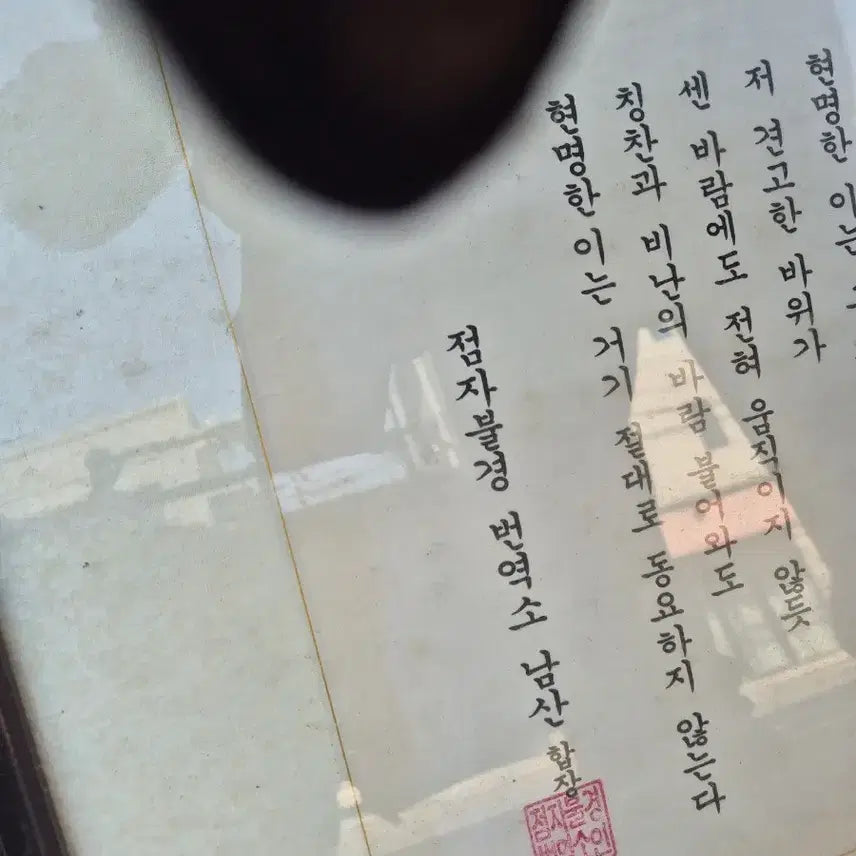 현명한 이는
저 견고한 바위가
센 바람에도 전혀 움직이지 않듯
칭찬과 비난의 바람 불어와도
현명한 이는 거기 절대로 동요하지 않는다
점자불경 번역소 남산 합장
점자불경